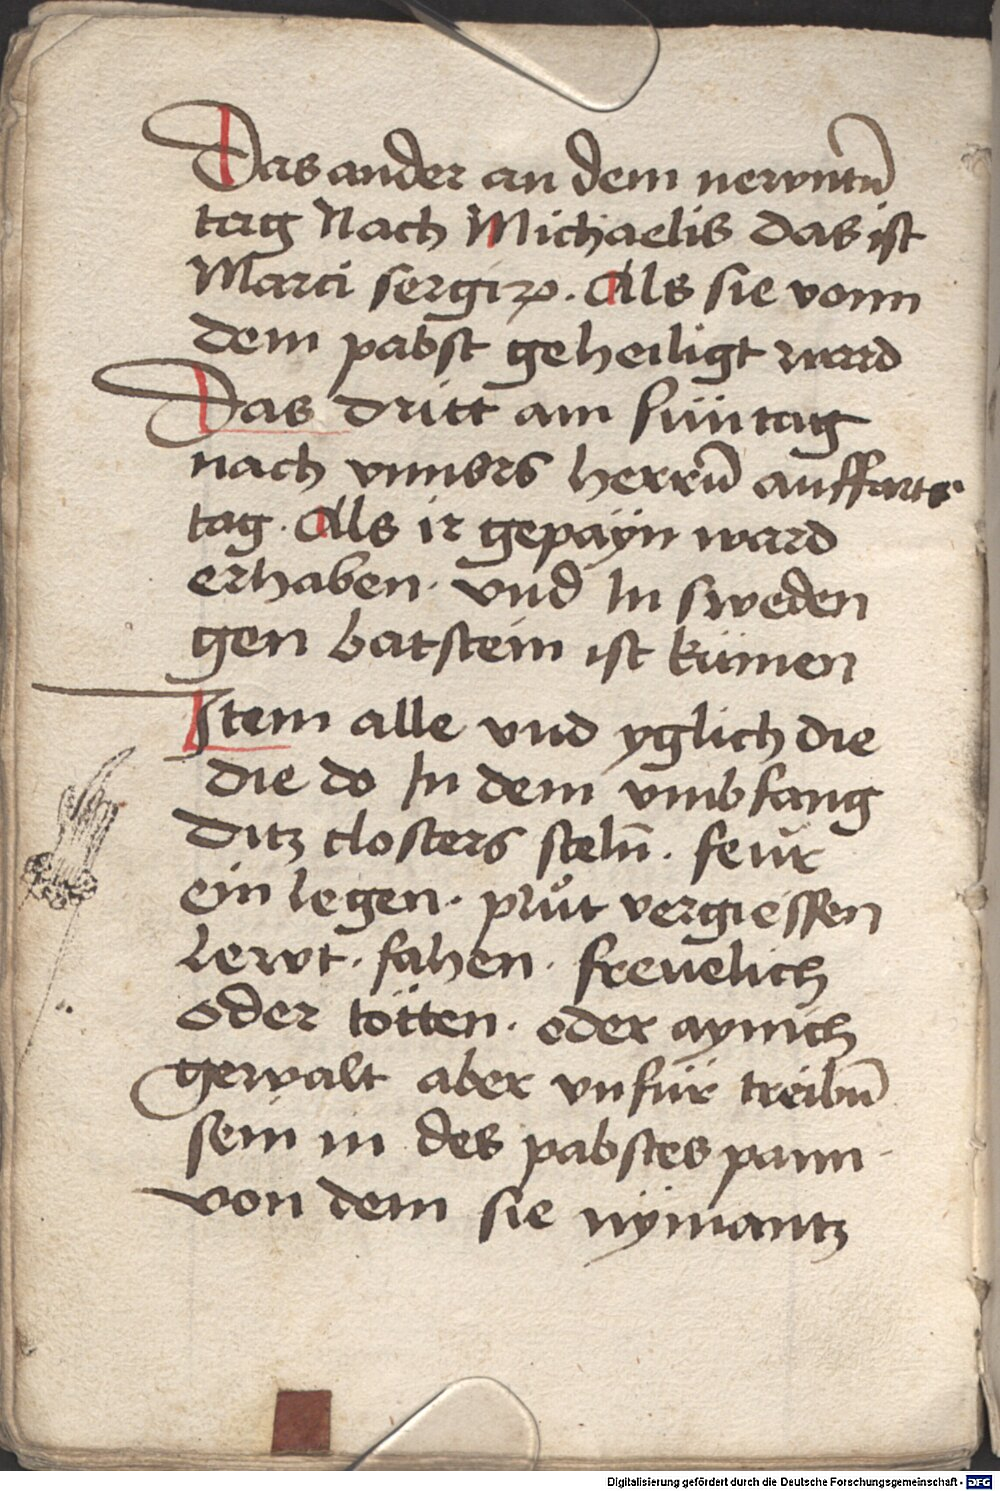 Das ander an dem newntn̄
tag Nach Michaelis das ist
Marci sergi ꝛc. Als sie vonn
dem pabst geheiligt ward
Das dritt am suntag
nach vnnsers herrn̄ auffarts
tag. Als ir gepayn ward
erhaben. vnd In sweden
gen batstein ist kumen
Item alle vnd yglich die
die do In dem vmbfang
ditz closters steln̄. feur
ein legen. plůt vergiessen
lewt. fahen. freuelich
oder tötten. oder aynich
gewalt aber vnfur treibn̄
sein in des pabstes pann
von dem sie nÿmantz
Digitalisierung gefördert durch die Deutsche Forschungsgemeinschaft - DFG